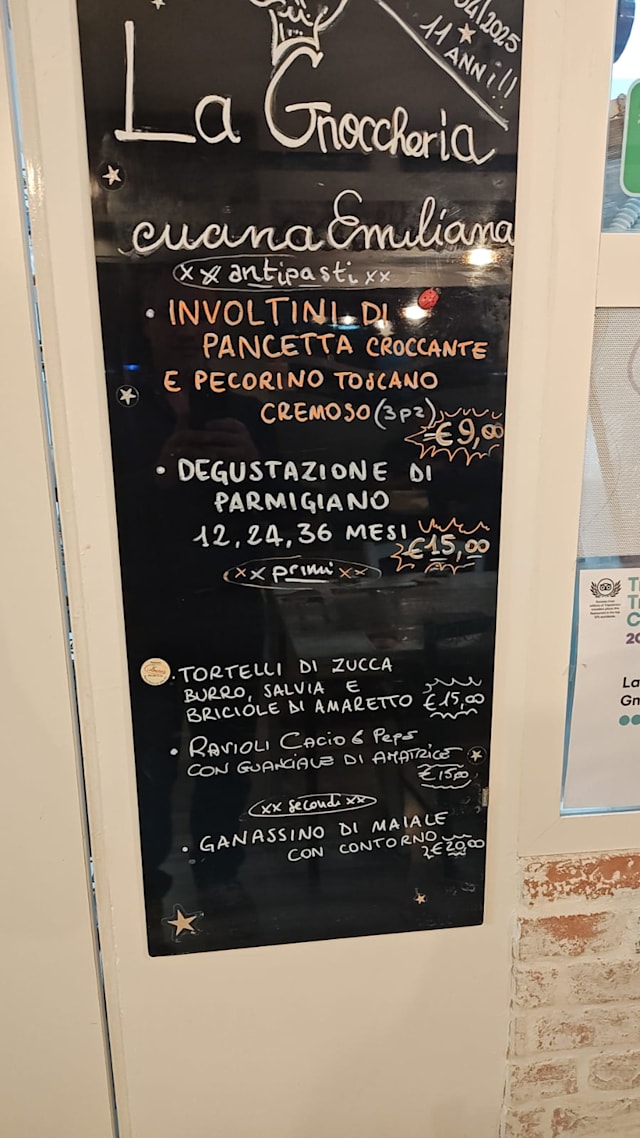 04/2025
11 ANNI!!
La Gnoccheria
cucina Emiliana
xx antipasti xx
• INVOLTINI DI
PANCETTA CROCCANTE
E PECORINO TOSCANO
CREMOSO (3pz)
€9,00
• DEGUSTAZIONE DI
PARMIGIANO
12, 24, 36 MESI
€15,00
xx primi xx
• TORTELLI DI ZUCCA
BURRO, SALVIA E
BRICIOLE DI AMARETTO €15,00
• RAVIOLI CACIO E Pepe
CON GUANCIALE DI AMATRICE
€15,00
xx secondi xx
• GANASSINO DI MAIALE
CON CONTORNO €20,00
La
Gn